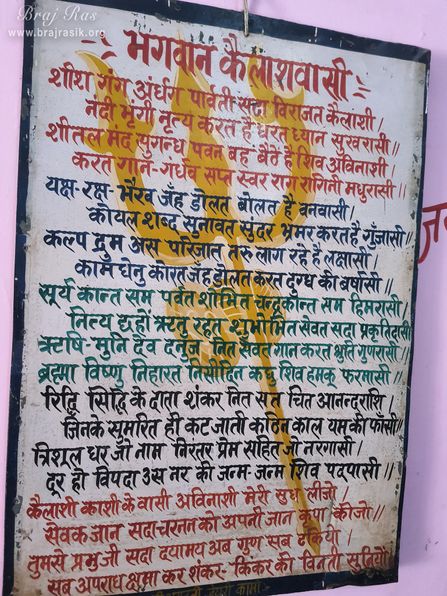 Braj Ras
www.brajrasik.org
भगवान कैलाशवासी
शीश गंग अर्धंग पार्वती सदा विराजत कैलाशी।
नंदी भृंगी नृत्य करत है धरत ध्यान सुखरासी॥
शीतल मंद सुगन्ध पवन बहे बैठे है शिव अविनाशी।
करत गान-गंधर्व सप्त स्वर राग रागिनी मधुरासी॥
यक्ष-रक्ष-भैरव जँह डोलत बोलत है वनवासी।
कोयल शब्द सुनावत सुंदर भ्रमर करत है गुँजासी॥
कल्प द्रुम अस पारिजात तरु लाग रहे है लक्षासी।
काम धेनु कोरत जँह डोलत करत दुग्ध की बर्षासी॥
सूर्य कान्त सम पर्वत शोभित चन्द्रकान्त सम हिमरासी।
नित्य छहों ऋतु रहत सुशोभित सेवत सदा प्रकृतिदासी॥
ऋषि-मुनि देव दनुज नित सेवत गान करत श्रुति गुणरासी।
ब्रह्मा विष्णु निहारत निसीदिन कछु शिव हमकू फरमासी॥
रिद्धि सिद्धि के दाता शंकर नित सत चित आनन्दराशि।
जिनके सुमरित ही कट जाती कठिन काल यम की फाँसी॥
त्रिशूल धर जो नाम निरंतर प्रेम सहित जो नरगासी।
दूर हो विपदा उस नर की जन्म-जन्म शिव पदपासी॥
कैलाशी काशी के वासी अविनाशी मेरी सुध लीजो।
सेवक जान सदा चरनन को अपनी जान कृपा कीजो॥
तुमसे प्रभुजी सदा दयामय अब गुण सब ढकियो।
सब अपराध क्षमा कर शंकर-किंकर की विनती सुनियो